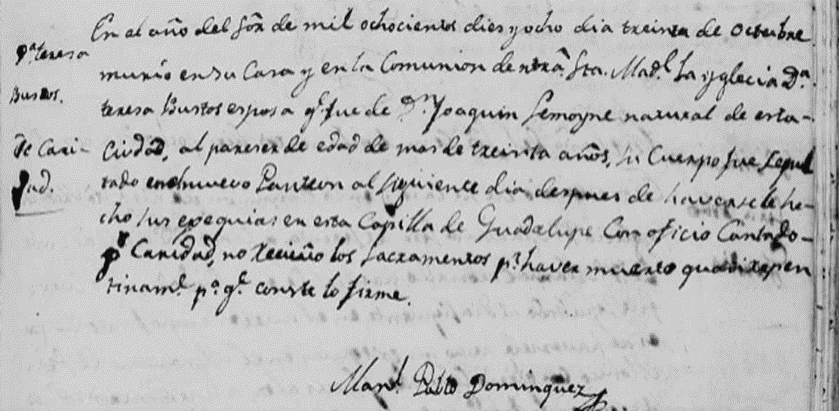 En el año del Sor̃ de mil ochocientos dies y ocho dia treinta de Octubre
Dª. teresa
Bustos.
De Cari-
dad.
murió en su Casa y en la Comunion de ntrã. Sta. Mad.ᵉ la yglecia Dª.
teresa Bustos esposa q.ᵉ fue de Dⁿ. Joaquin Lemoyne natural de esta-
Ciudad, al pareser de edad de mas de treinta años, su Cuerpo fue sepul
tado en el nuevo Panteon al siguiente dia despues de haversele he-
cho sus exequias en esta Capilla de Guadalupe Con oficio Cantado-
pʳ Caridad, no recivio los Sacramentos pʳ. haver muerto quasi repen
tinam.ᵉ pª. q.ᵉ conste lo firme.
Man.ˡ Pablo Dominguez